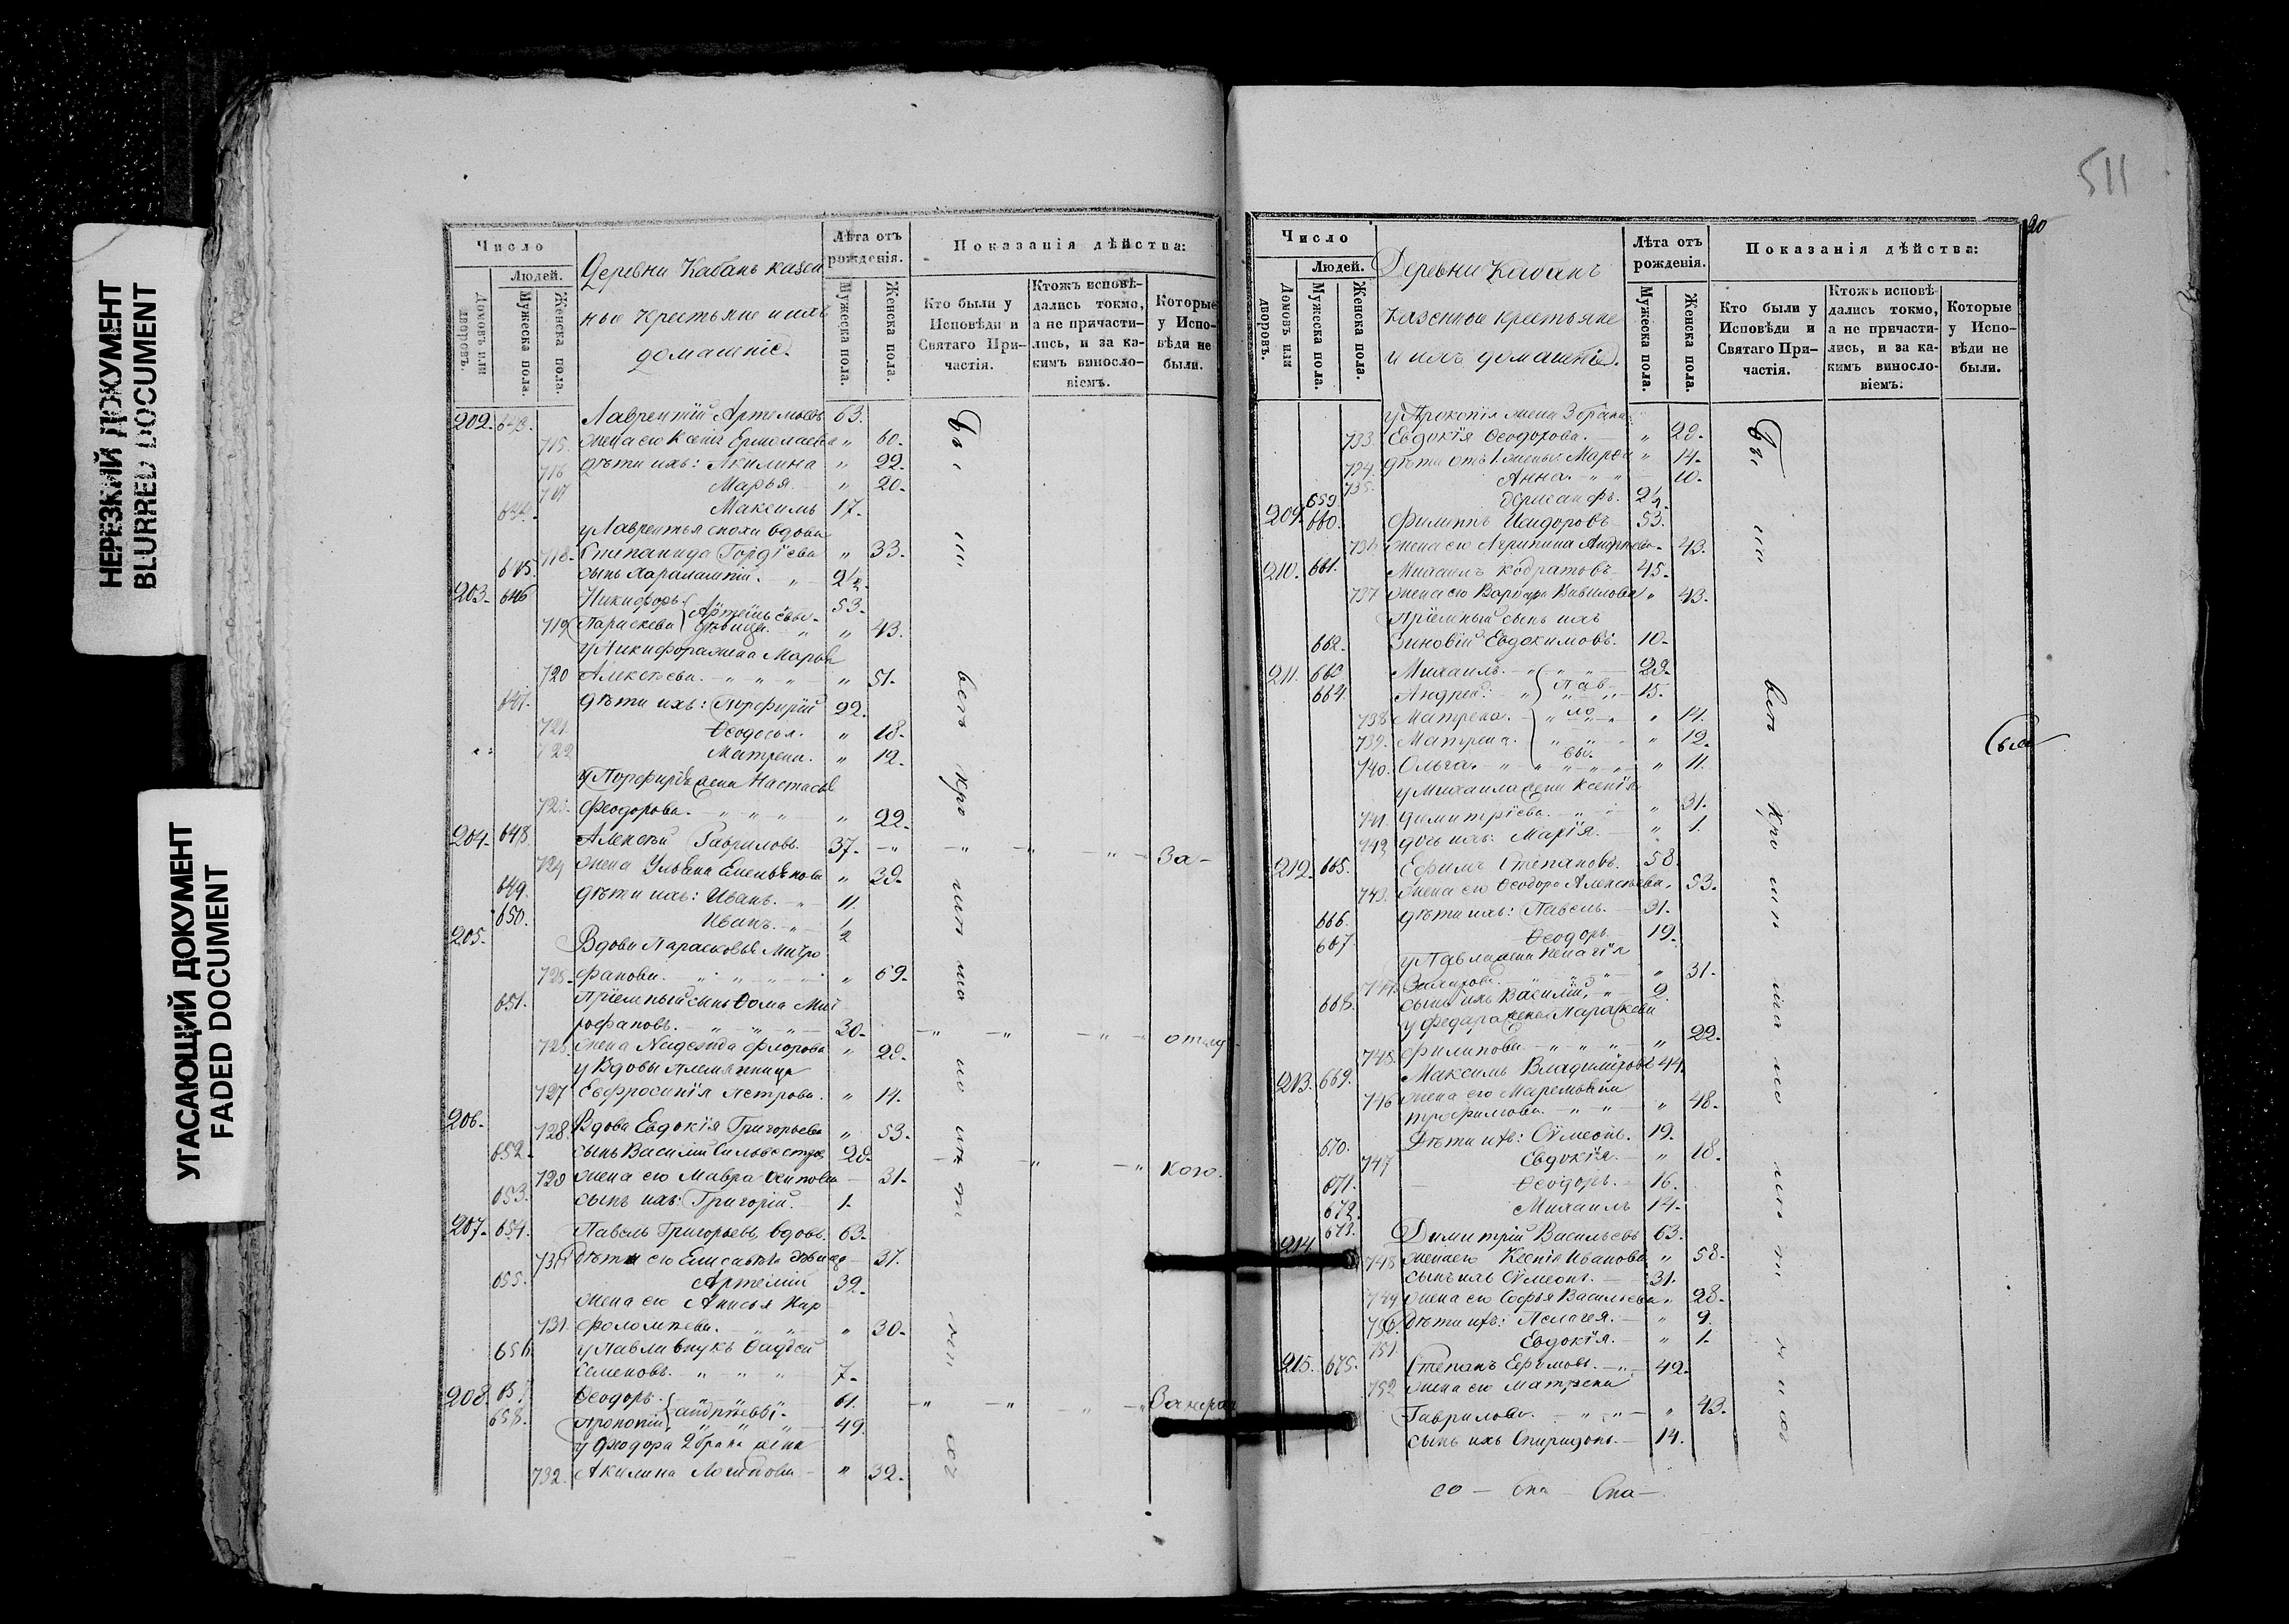 НЕРЕЗКИЙ ДОКУМЕНТ
BLURRED DOCUMENT
УГАСАЮЩИЙ ДОКУМЕНТ
FADED DOCUMENT
Число
Людей.
Домовъ или дворовъ.
Мужеска пола.
Женска пола.
Деревни Кабанъ казен
ные крестьяне и ихъ
домашніе.
Лѣта отъ рожденія.
Мужеска пола.
Женска пола.
Показанія дѣйства:
Кто были у Исповѣди и Святаго Причастія.
Ктожъ исповѣдались токмо, а не причастились, и за какимъ винословіемъ.
Которые у Исповѣди не были.
202. 643. Лаврентій Артемьевъ 63.
715. жена его Ксенія Ермолаева " 60.
716 дѣти ихъ: Акилина " 22.
717 Марья " 20.
644. Максимъ 17.
у Лаврентья сноха вдова
718. Степанида Гордіева " 33.
645. сынъ Харалампій. " 2 1/2.
203. 646 Никифоръ Артемьевы 53.
719 Параскева дѣвица " 43.
у Никифора жена Марья
720 Алексѣева. " " " " 51.
647. дѣти ихъ: Порфирій 22.
721 Ѳеодосья. " 18.
722 Матрена. " 12.
у Порфирія жена Настасья
723. Феодорова. " " " " 22.
204. 648. Алексѣй Гавриловъ. 37. За-
724 жена Ульяна Емельянова " 39.
649. дѣти ихъ: Иванъ. 11.
650. Иванъ. 1/2
205. Вдова Парасковья Митро
725. фанова. " 69.
651. Пріемный сынъ Ѳома Мит
рофановъ. 30. отлу
726. жена Надежда Флорова " 29.
у Вдовы племянница
727 Евфросинія Петрова. " 14.
206. 728. Вдова Евдокія Григорьева " 53.
652. сынъ Василій Сильвестровъ 29. кого.
729 жена его Мавра Осипова 31.
653. сынъ ихъ: Григорій. 1.
207. 654. Павелъ Григорьевъ вдовъ. 63.
730 дѣти его Елисавета дѣвица 37.
655. Артемій 39.
жена его Анисья Нир
731. фоломѣева. " 30.
656 у Павла внукъ Ѳаддей
Семеновъ. " " " 7.
208. 657 Ѳеодоръ. Андрѣевы. 61.
658. Прокопій 49.
у Феодора 2 брака жена
732. Акилина Логинова " 32.
Бы ли вси кро
511
20
Число
Людей.
Домовъ или дворовъ.
Мужеска пола.
Женска пола.
Деревни Кабанъ
казенные крестьяне
и ихъ домашніе.
Лѣта отъ рожденія.
Мужеска пола.
Женска пола.
Показанія дѣйства:
Кто были у Исповѣди и Святаго Причастія.
Ктожъ исповѣдались токмо, а не причастились, и за какимъ винословіемъ.
Которые у Исповѣди не были.
у Прокопія жена 3 брака
733 Евдокія Ѳеодорова. " 29.
734. дѣти отъ 1 жены: Марѳа " 14.
735. Анна. " " 10.
659 2 1/2.
209. 660. Филиппъ Исидоровъ 53.
736 жена его Агрипина Андрѣева 43.
210. 661. Михаилъ Кодратовъ 45.
737 жена его Варвара Вавилова " 43.
Пріемный сынъ ихъ
662. Зиновій Евдокимовъ. 10.
211. 663 Михаилъ. Пав 29.
664. Андрей. 15.
738 Матрена. ло " 14.
739. Матрена. " 12.
740. Ольга. вы. " 11.
у Михаила жена Ксенія
741. Димитріева. " 31.
742 дочь ихъ: Марія. " 1.
212. 665. Ефимъ Степановъ. 58.
743. жена его Ѳеодора Алексѣева. 53.
666. дѣти ихъ: Павелъ. 31.
667 Ѳеодоръ 19.
у Павла жена Пелагія
744. " 31.
668. сынъ ихъ Василій, " 2.
у Федора жена Параскева
745. Филипова " " " 22.
213. 669. Максимъ Владиміровъ 44.
746 жена его Маремьяна
Трофимова. " " " 48.
670. Дѣти ихъ: Сѵмеонъ. 19.
747 Евдокія. " 18.
671. Ѳеодоръ. 16.
672. Михаилъ 14.
214 673. Димитрій Васильевъ 63.
748 жена его Ксенія Иванова " 58.
сынъ ихъ Сѵмеонъ. 31.
749 жена его Софья Васильева 28.
750 Дѣти ихъ: Пелагея. " 9.
751. Евдокія. " 1.
215. 675. Степанъ Ефимовъ. 42.
752 жена его Матрена
Гаврилова. " " " 43.
сынъ ихъ Спиридонъ. 14.